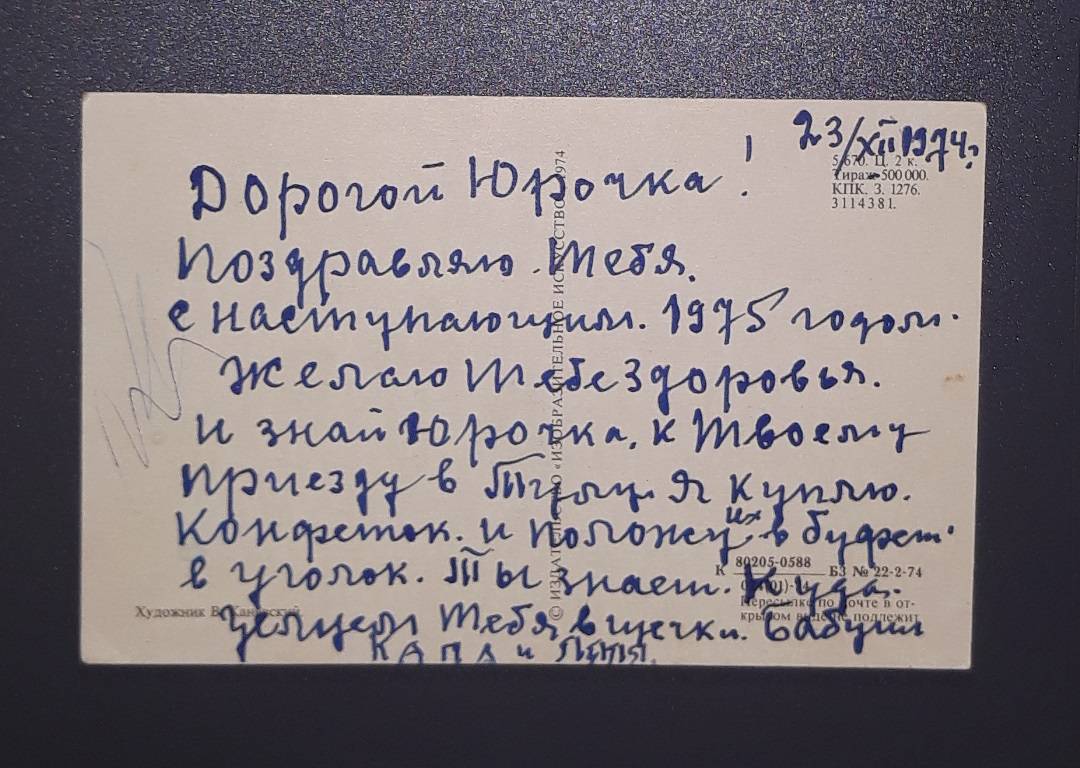 23/XII 1974г.
5-670. Ц. 2 к.
Тираж 500 000.
КПК. З. 1276.
3114381.
Дорогой Юрочка!
Поздравляю Тебя.
с наступающим. 1975 годом.
Желаю Тебе здоровья.
и знай Юрочка, к Твоему
приезду в я куплю.
Конфеток. и положу их в буфет.
в уголок. Ты знаеш. Куда.
Целуем Тебя в щечки. Бабуши
КАПА и
© ИЗДАТЕЛЬСТВО «ИЗОБРАЗИТЕЛЬНОЕ ИСКУССТВО» 1974
К 80205-0588 БЗ № 22-2-74
Пересылке по почте в от-
крытом виде не подлежит
Художник В.